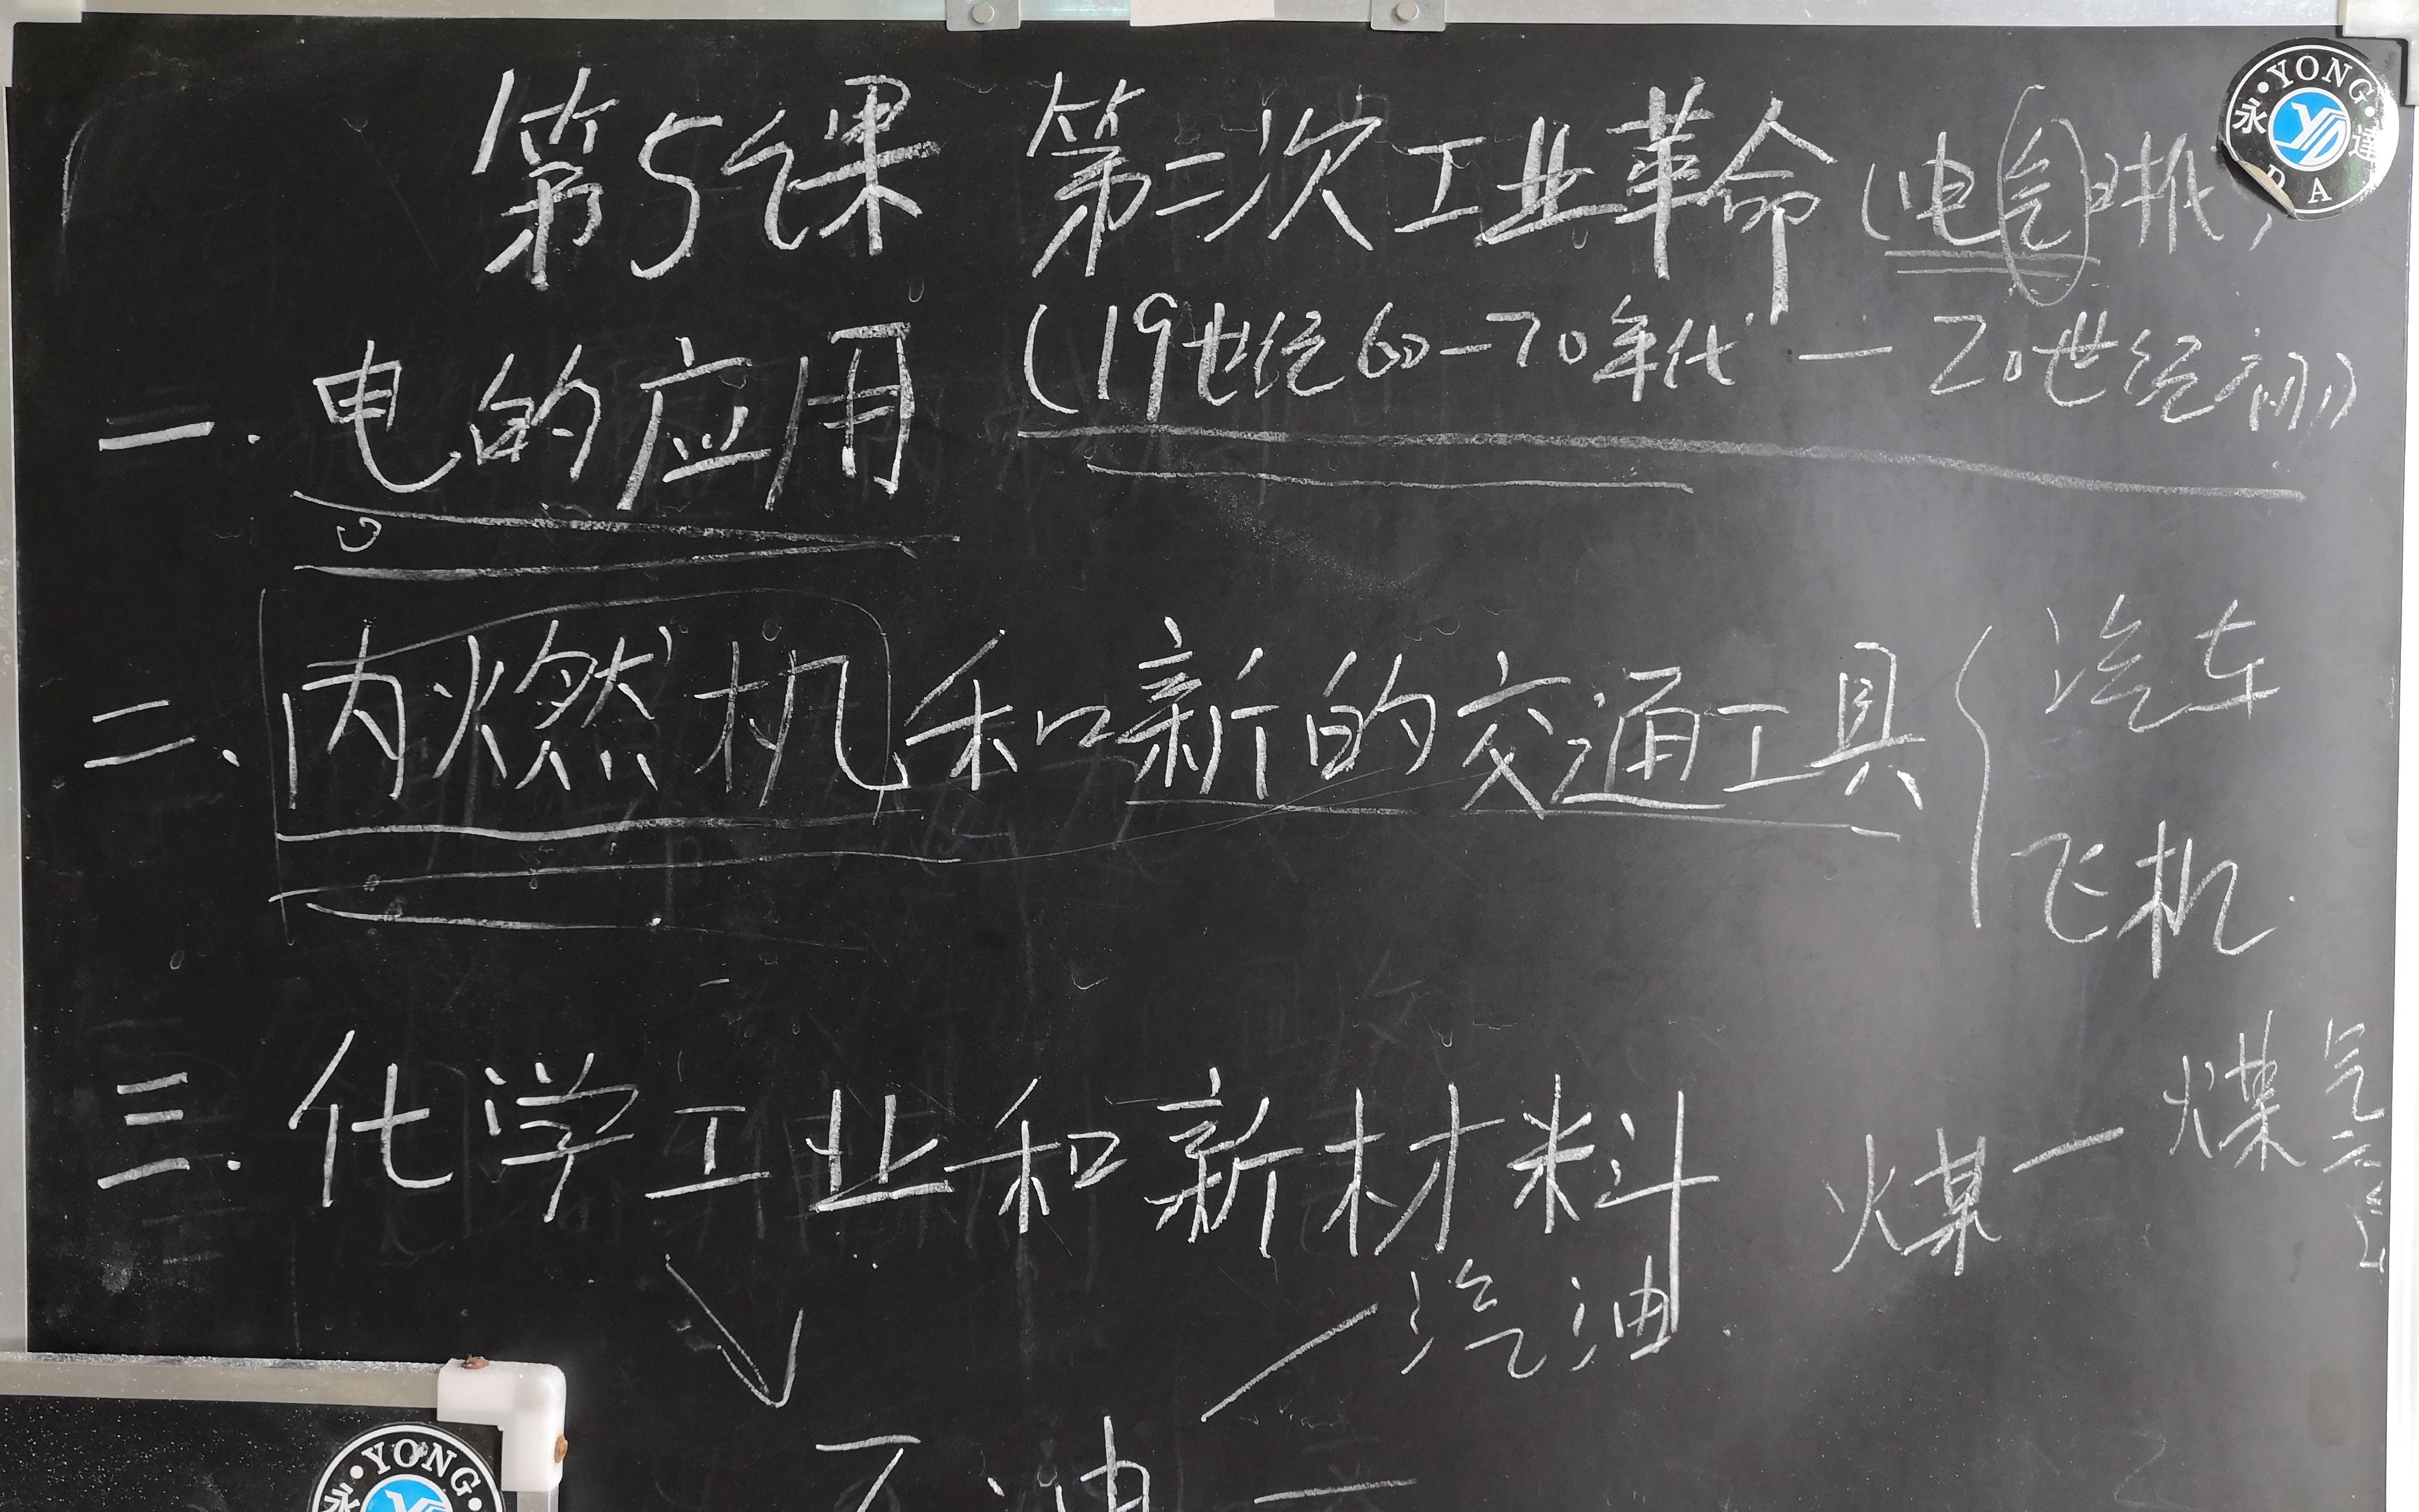 第5课 第二次工业革命(电气时代)
(19世纪60-70年代 — 20世纪初)
一. 电的应用
二、内燃机和新的交通工具{汽车
飞机
三. 化学工业和新材料
煤—煤气
汽油
石油
·YONG·
永达
DA
YD
·YONG·
永